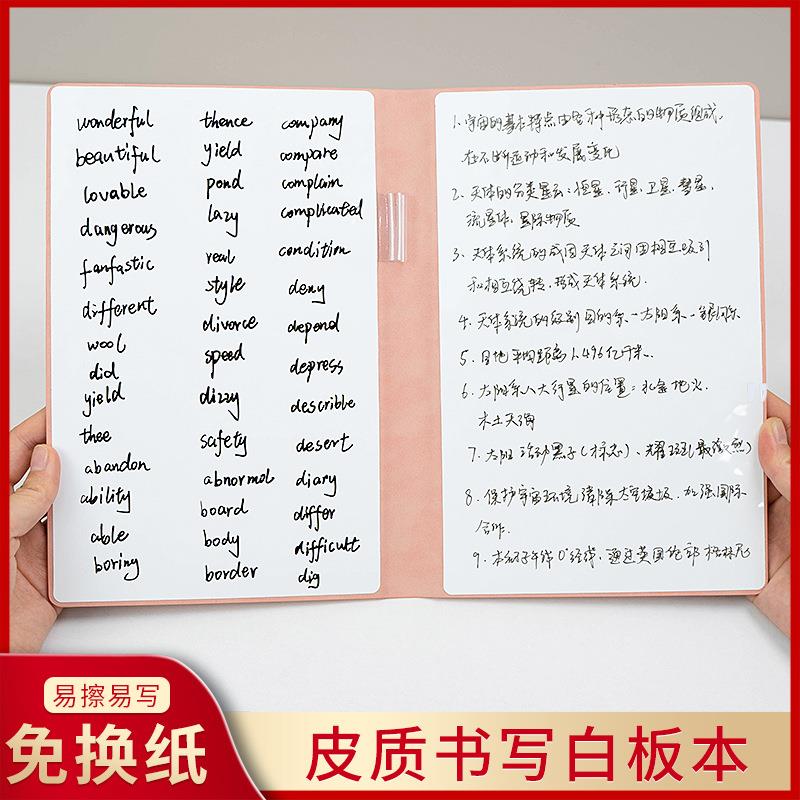 wonderful
beautiful
lovable
dangerous
fanfastic
different
wool
did
yield
thee
abandon
ability
able
boring
thence
yield
pond
lazy
real
style
divorce
speed
dizzy
safety
abnormal
board
body
border
company
compare
complain
complicated
condition
deny
depend
depress
describle
desert
diary
differ
difficult
dig
1、宇宙的基本特点由各种形态的物质组成,
在不断运动和发展变化
2、天体的分类星云:恒星、行星、卫星、彗星、
流星体、星际物质
3、天体系统的成因天体之间因相互吸引
和相互绕转,形成天体系统.
4、天体系统的级别 地月系-太阳系-银河系
5、日地平均距离1.496亿千米.
6、太阳系八大行星的位置:水金地火、
木土天海
7、太阳活动黑子(标志)、耀斑(最激烈)
8、保护宇宙环境 清除太空垃圾、加强国际
合作.
9、本初子午线0°经线,通过英国伦敦
易擦易写
免换纸
皮质书写白板本